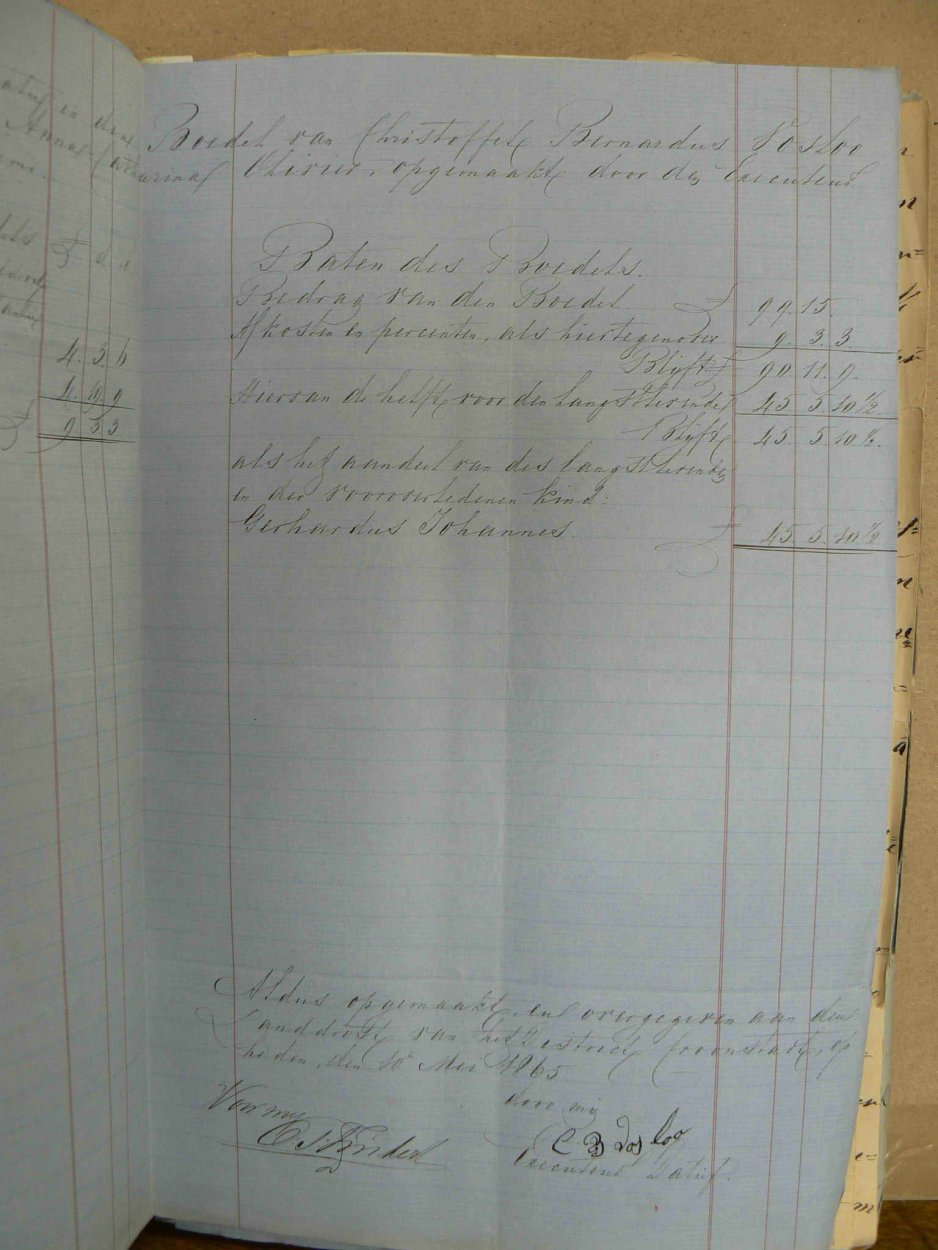 4. 3. 6
4. 19. 9
£ 9 3 3
Boedel van Christoffel Bernardus Vosloo
Olivier, opgemaakt door den Executeur
Baten des Boedels.
Bedrag van den Boedel £ 99. 15.
Afkosten en percenten, als hiertegenover 9. 3. 3.
Blijft £ 90. 11. 9.
Hiervan de helft voor den langstlevende 45 5 10 1/2
Blijft 45 5 10 1/2.
als het aandeel van des langstlevendes
en der vooroverledenen kind:
Gerhardus Johannes. £ 45 5 10 1/2
Aldus opgemaakt, en overgegeven aan den
Landdrost van het District Croonstadt, op
heden, den 10 Mei 1865
door mij
Voor my
C B Vosloo
Executeur Datief.